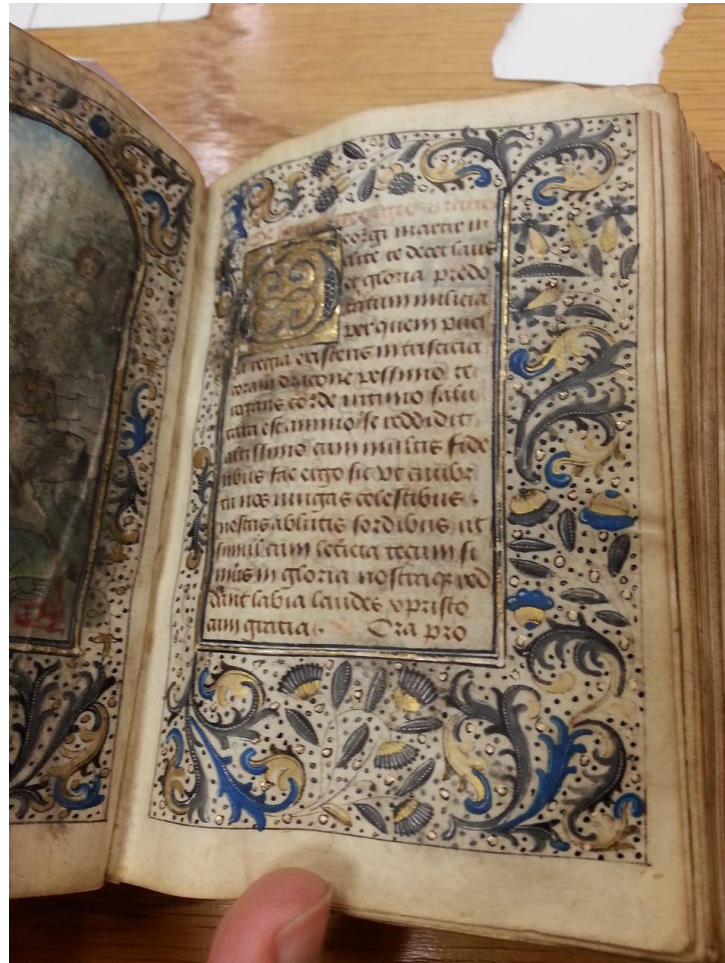 eorgi martir in
clite te decet laus
et gloria predo
tatum milicia
per quem puel
la regia existens in tristicia
coram dracone pessimo te
corde intimo salu
tata est animo se reddidit
altissimo cum multis fide
libus fac ergo sic vt
nos iungas celestibus
nostris ablutis sordibus ut
simul cum leticia tecum si
mus in gloria nostraque red
dant labia laudes xpristo
cum gratia. Ora pro